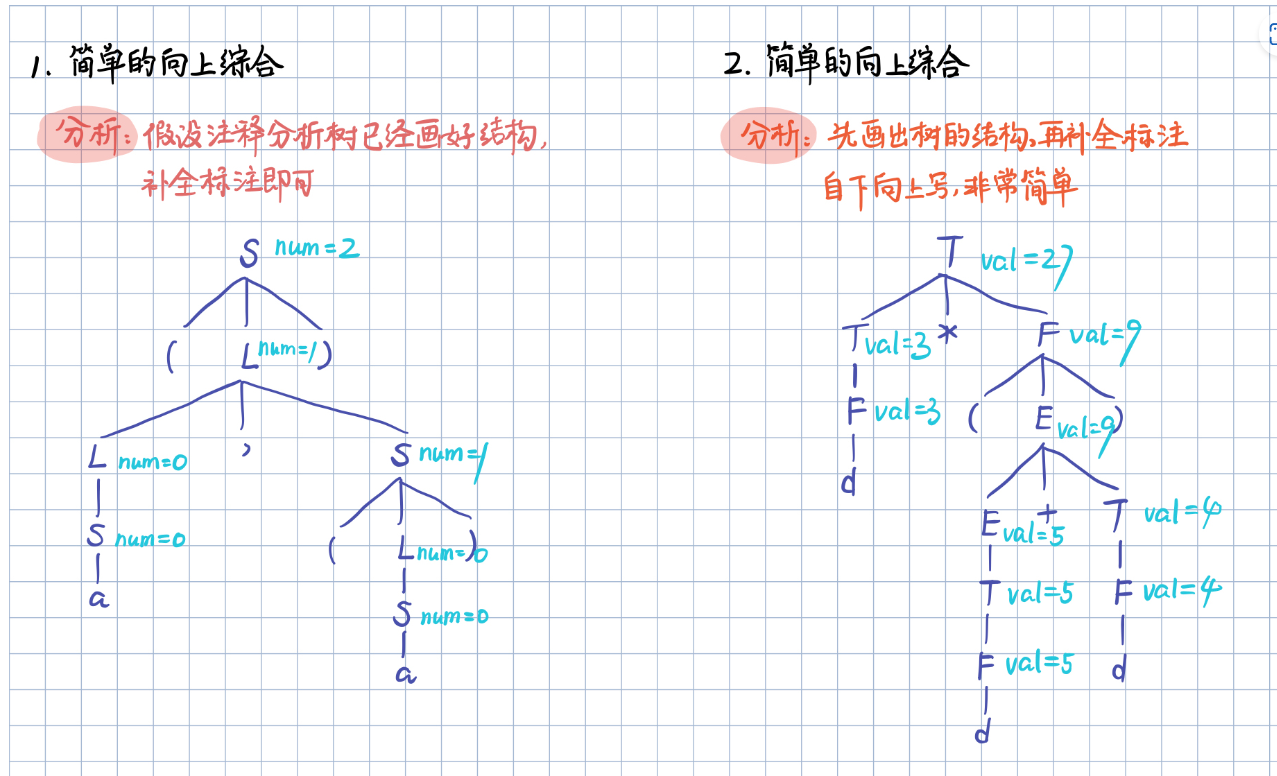 1. 简单的向上综合
分析: 假设注释分析树已经画好结构,
补全标注即可
S num=2
( L num=1 )
L num=0 , S num=1
S num=0 ( L num=0 )
a S num=0
a
2. 简单的向上综合
分析: 先画出树的结构,再补全标注
自下向上写,非常简单
T val=27
T val=3 * F val=9
F val=3 ( E val=9 )
d
E val=5 + T val=4
T val=5 F val=4
F val=5 d
d